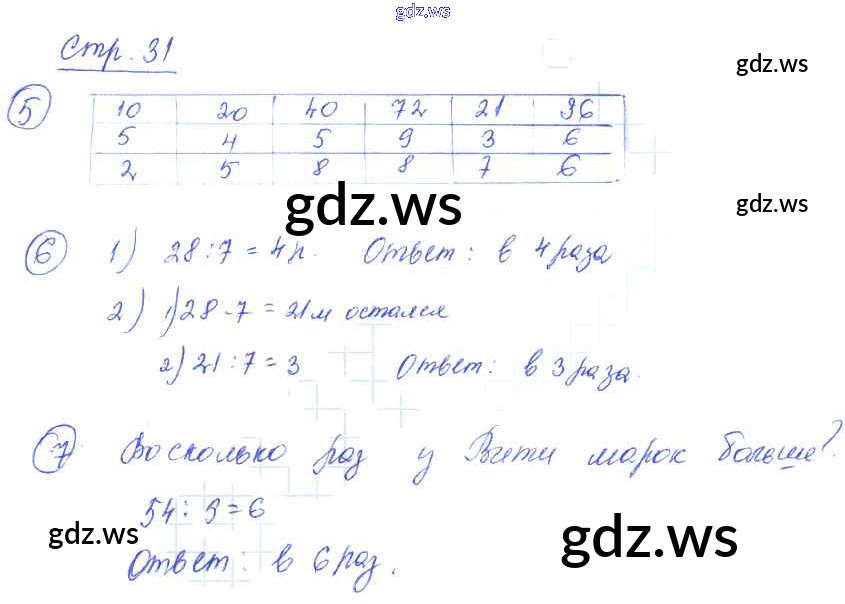 gdz.ws
Стр. 31
gdz.ws
5
10 20 40 72 21 36
5 4 5 9 3 6
2 5 8 8 7 6
gdz.ws
gdz.ws
6 1) 28:7=4 р. Ответ: в 4 раза
2) 1) 28-7=21 м остался
2) 21:7=3 Ответ: в 3 раза.
7 Восколько раз у Вити марок больше?
54:9=6
gdz.ws
gdz.ws
Ответ: в 6 раз.